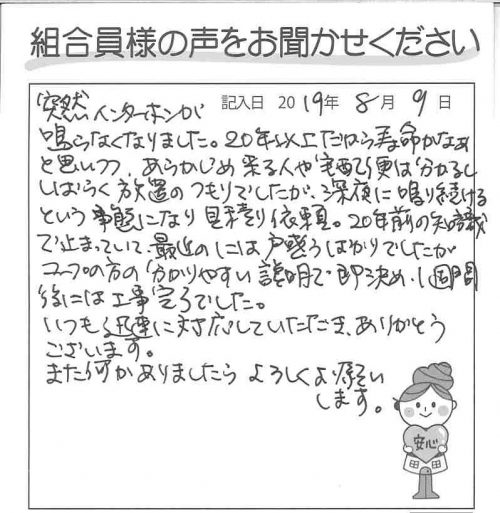 組合員様の声をお聞かせください
記入日 2019年 8月 9日
突然インターホンが
鳴らなくなりました。20年以上だから寿命かなぁ
と思いつつ、あらかじめ来る人や宅配便は分かるし
しばらく放置のつもりでしたが、深夜に鳴り続ける
という事態になり見積り依頼。20年前の知識
で止まっていて最近のには戸惑うばかりでしたが
コープの方の分かりやすい説明で即決め、1週間
後には工事完了でした。
いつも迅速に対応していただき、ありがとう
ございます。
また何かありましたらよろしくお願い
します。
安心